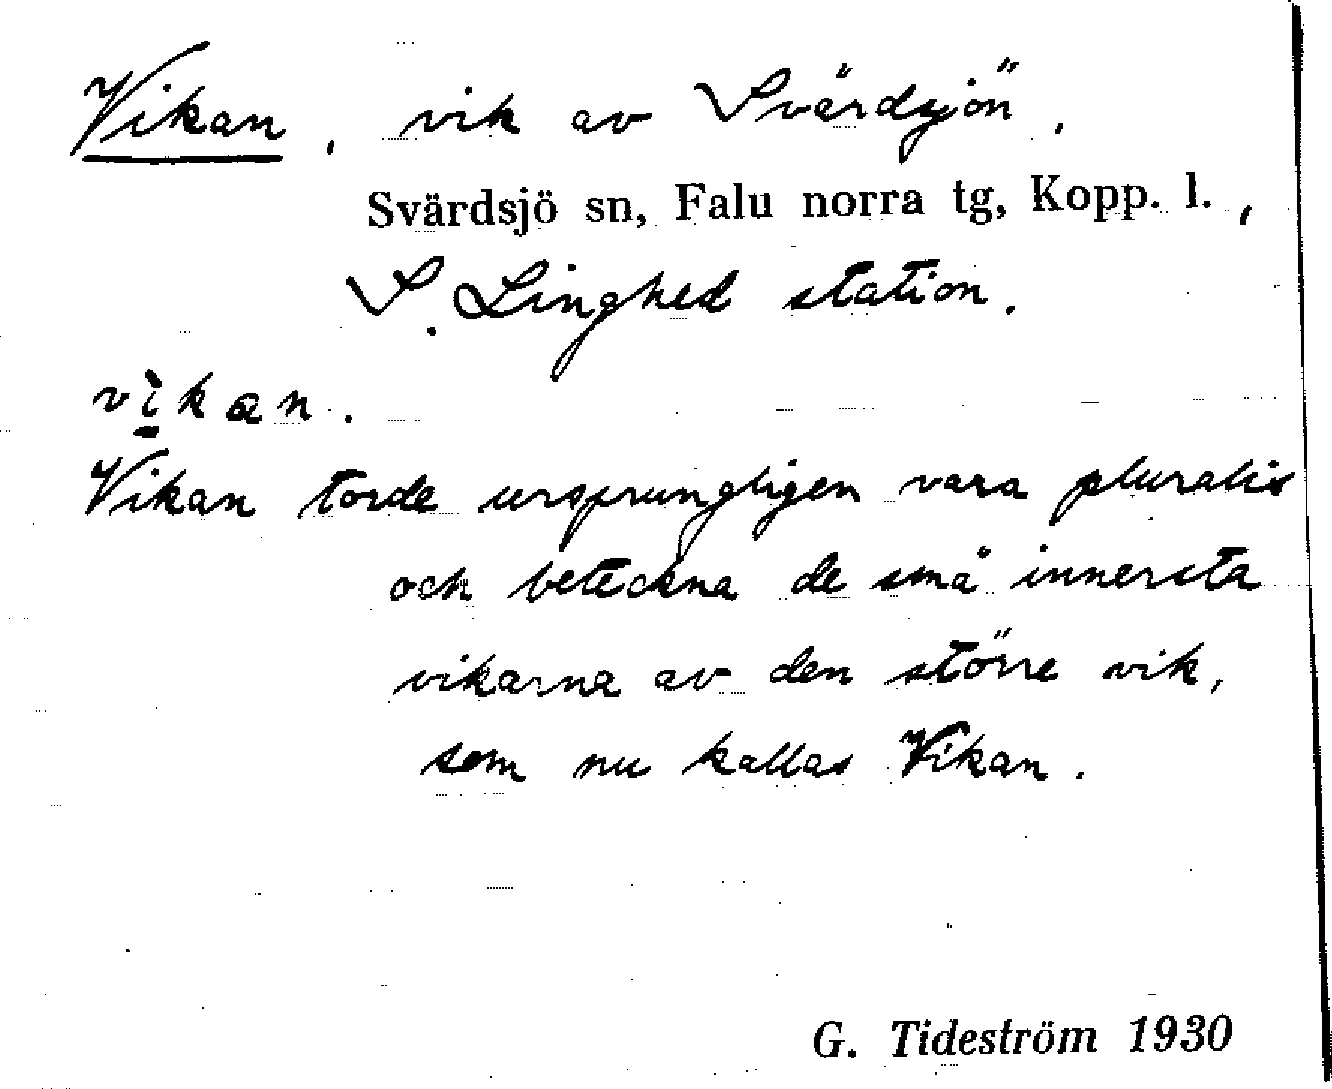 Vikan, vik av Svärdsjön,
Svärdsjö sn, Falu norra tg, Kopp. l.,
S. Linghed station.
vìkan.
Vikan torde ursprungligen vara pluralis
och beteckna de små innersta
vikarna av den större vik,
som nu kallas Vikan.
G. Tideström 1930